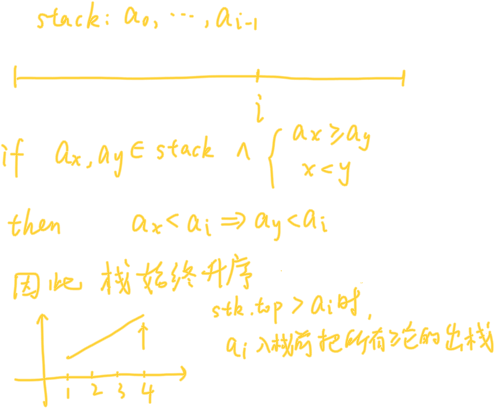 stack: a₀, ⋯, aᵢ₋₁
i
if aₓ, aᵧ ∈ stack ∧ { aₓ ≥ aᵧ
x < y
then aₓ < aᵢ ⇒ aᵧ < aᵢ
因此 栈始终升序
stk.top > aᵢ时,
aᵢ入栈前把所有的出栈
1 2 3 4